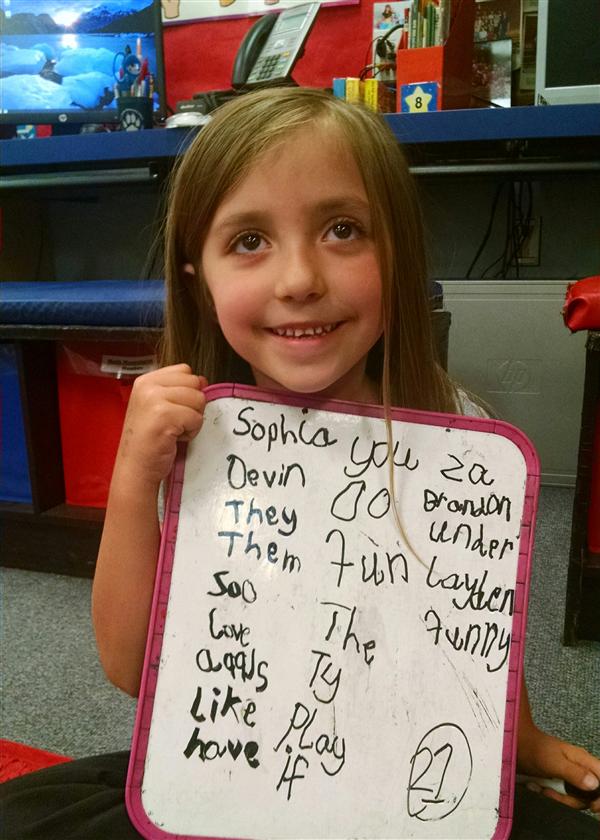 8
hp
Sophia
Devin
They
Them
Soo
Love
Like
have
you
Do
Fun
The
Ty
PLay
if
za
Brandon
under
Funny
21